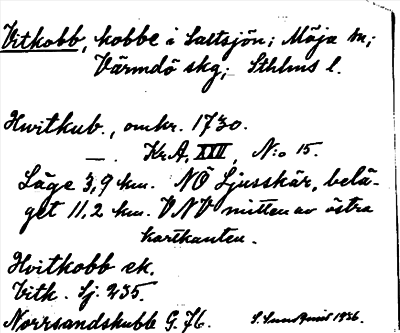 Vitkobb, kobbe i Saltsjön; Möja sn;
Värmdö skg; Sthlms l.
Hvitkub., omkr. 1730.
— . Kr.A, XXII, N:o 15.
Läge 3,9 km. NÖ Ljusskär, belä-
get 11,2 km. VNV mitten av östra
kartkanten.
Hvitkobb ek.
Vitk. Sj. 235.
Norrsandskubb G. 76. 1936.